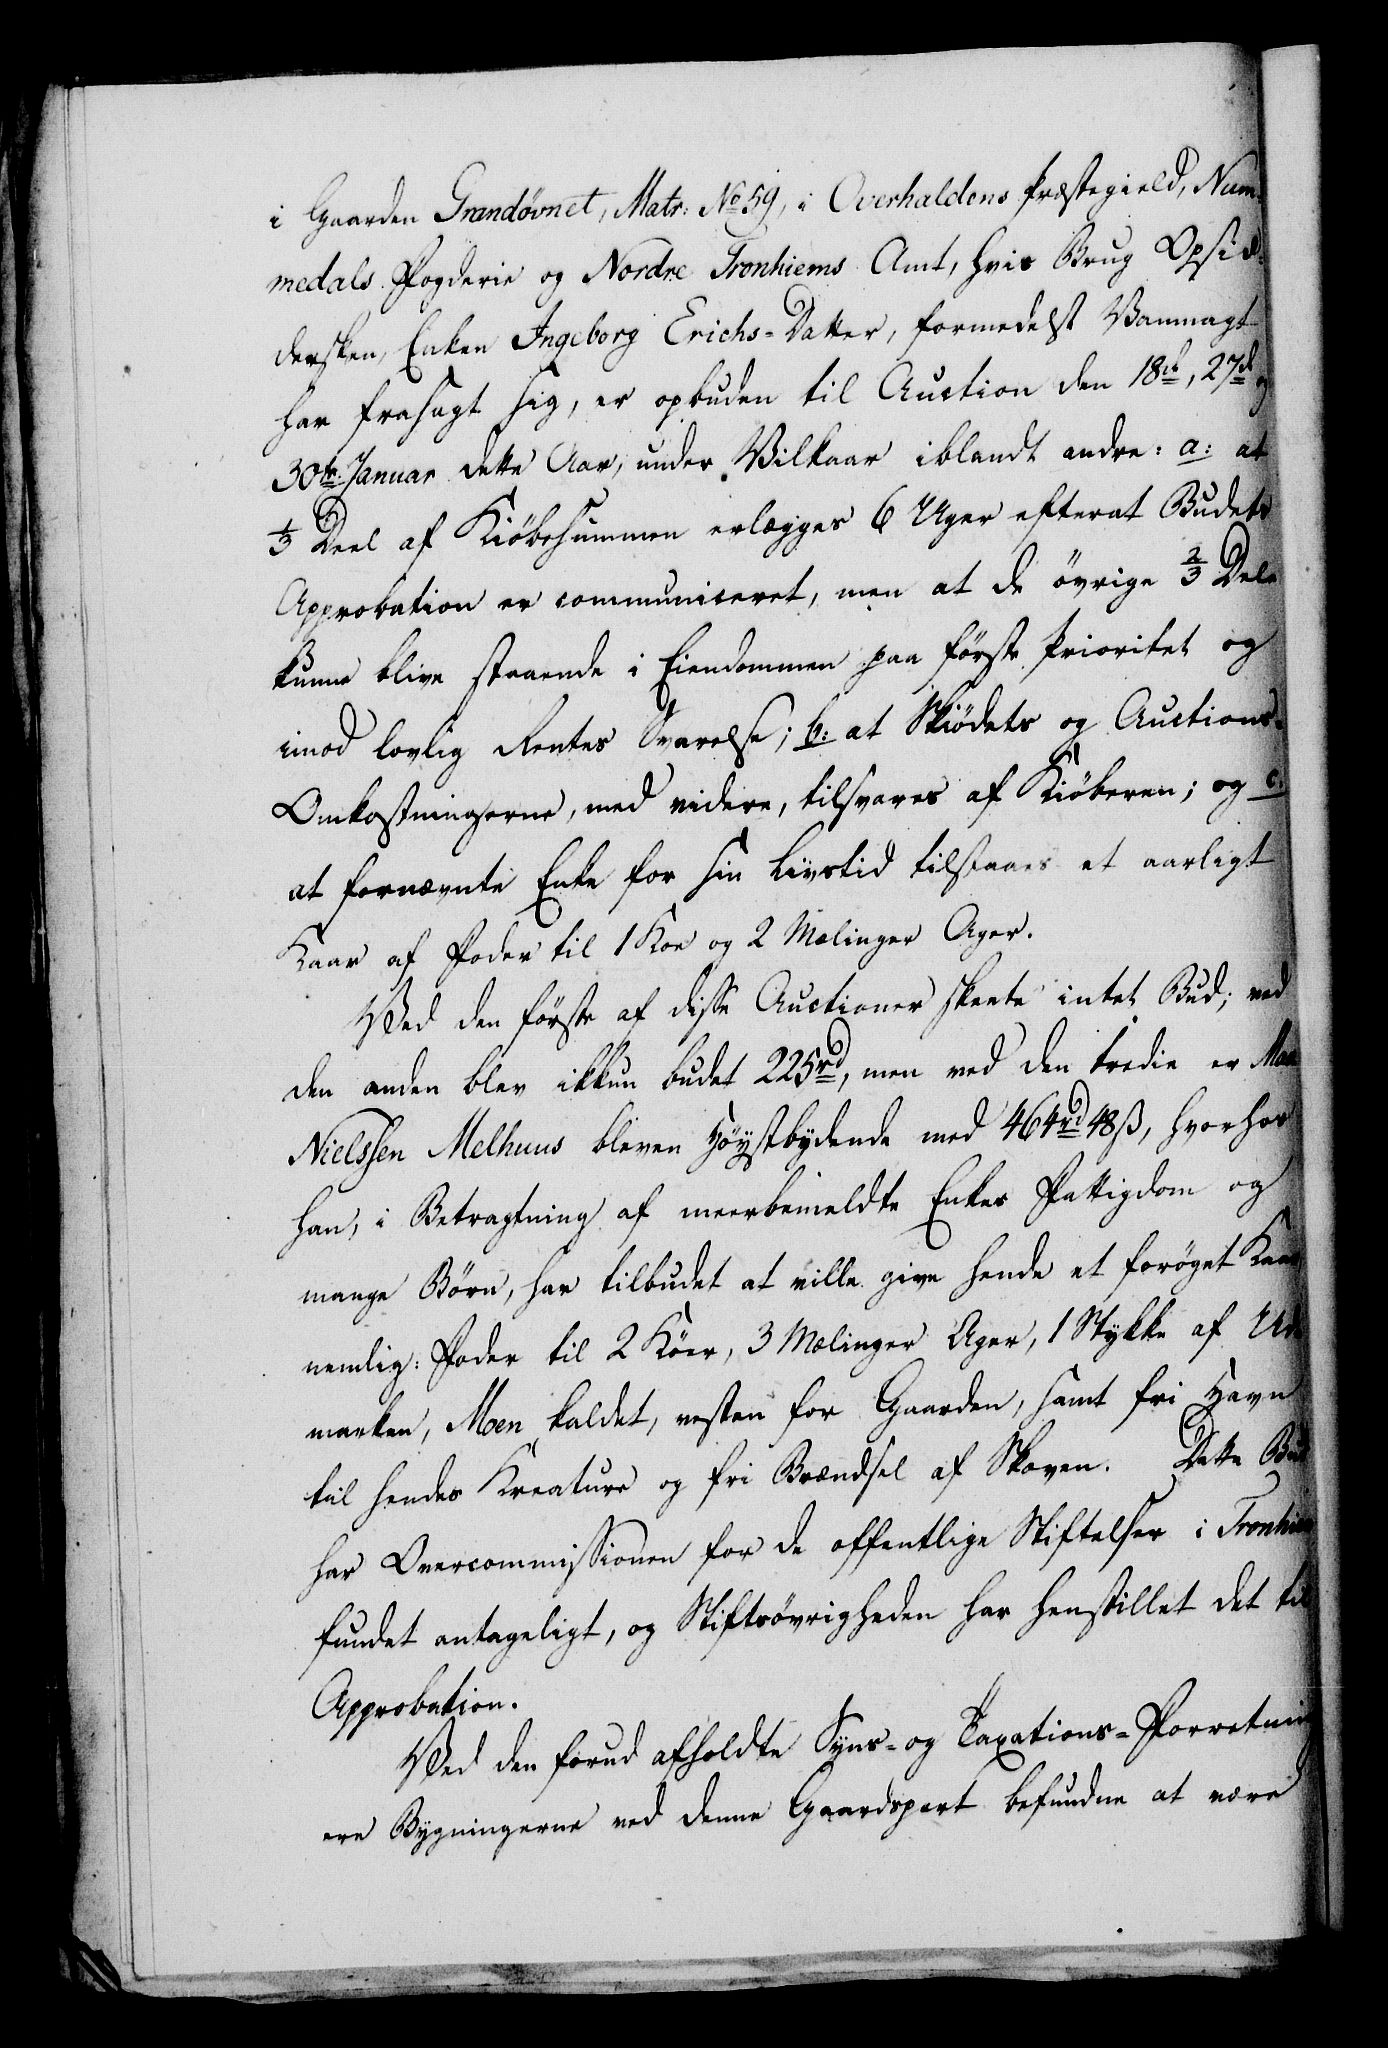 i Gaarden Grændøvnet, Matr: No 59, i Overhaldens Præstegield, Num-
medals Fogderie og Nordre Tronhiems Amt, hvis Brug Opsid-
dersken, Enken Ingeborg Erichs-Datter, formedelst Vanmagt
har frasagt sig, er opbuden til Auction den 18de, 27de og
30te Januar dette Aar, under Vilkaar iblandt andre: a: at
1/3 Deel af Kiöbesummen erlægges 6 Uger efterat Budets
Approbation er communiceret, men at de övrige 2/3 Dele
kunne blive staaende i Eiendommen paa förste Prioritet og
imod lovlig Rentes Svarelse; b: at Skiödets og Auctions-
Omkostningerne, med videre, tilsvares af Kiöberen; og c:
at fornævnte Enke for sin Livstid tilstaaes et aarligt
Kaar af Foder til 1 Koe og 2 Mælinger Ager.
Ved den förste af disse Auctioner skeete intet Bud; ved
den anden blev ikkun budet 225rd, men ved den tredie er
Nielssen Melhuus bleven Höystbydende med 464rd 48ß, hvorhos
han, i Betragtning af meerbemeldte Enkes Fattigdom og
mange Börn, har tilbudet at ville give hende et foröget Kaar
nemlig: Foder til 2 Köer, 3 Mælinger Ager, 1 Stykke af Ud-
marken, Moen kaldet, vesten for Gaarden, samt fri Havn
til hendes Kreature og fri Brændsel af Skoven. Dette Bud
har Overcommissionen for de offentlige Stiftelser i Tronhiem
fundet antageligt, og Stiftsövrigheden har henstillet det til
Approbation.
Ved den forud afholdte Syns- og Taxations-Forretning
ere Bygningerne ved denne Gaardspart befundne at være